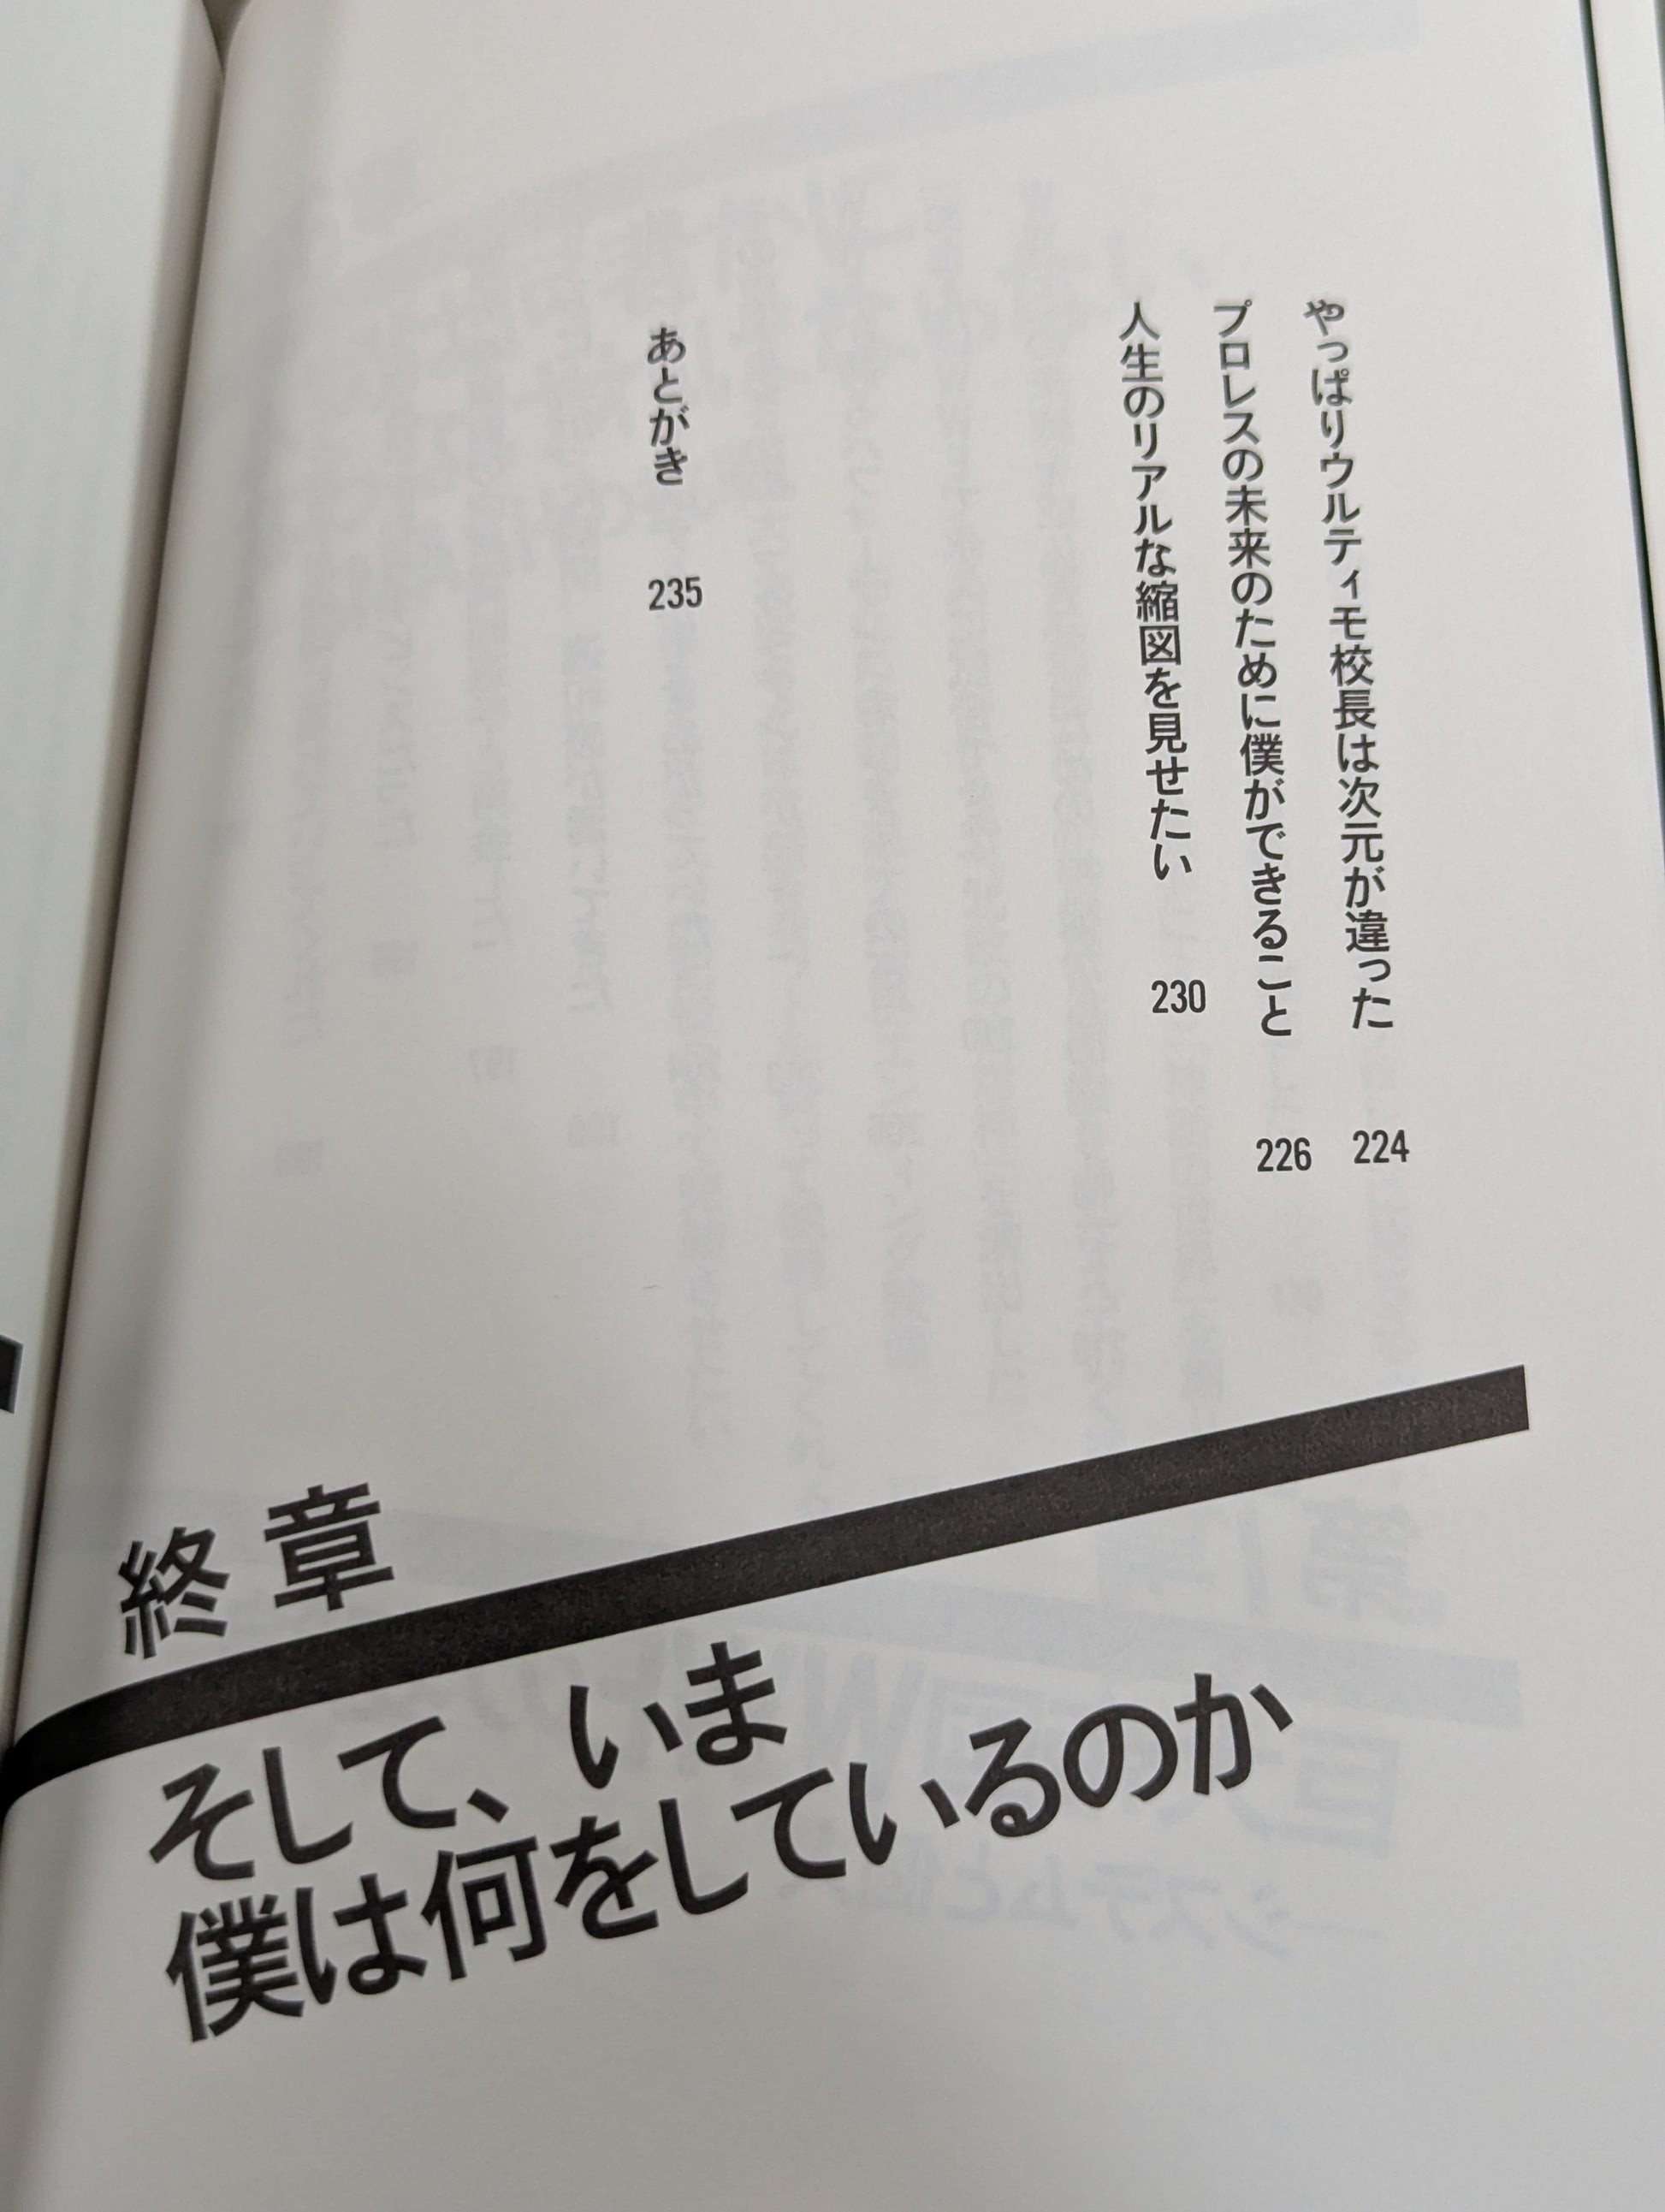 終章
そして、いま
僕は何をしているのか
やっぱりウルティモ校長は次元が違った 224
プロレスの未来のために僕ができること 226
人生のリアルな縮図を見せたい 230
あとがき 235